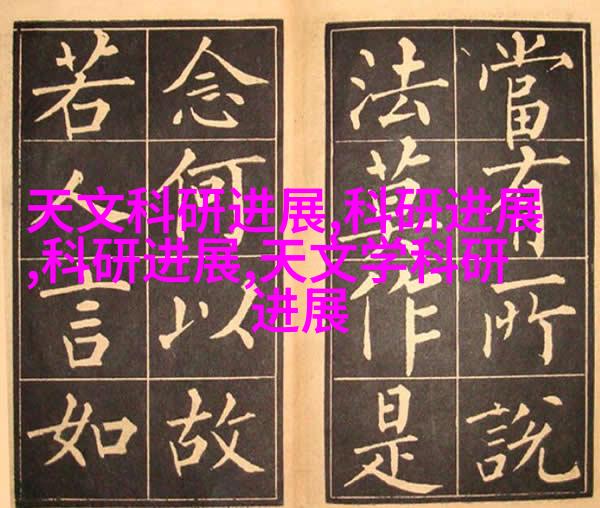 當有所說
法莫作是
念何以故
若人言如
天文科研进展,科研进展
,科研进展,天文学科研
进展